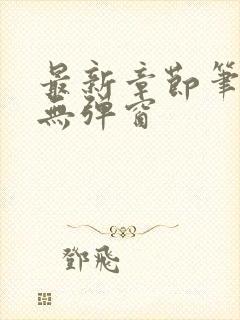 最新章節筆
無彈窗
鄧飛